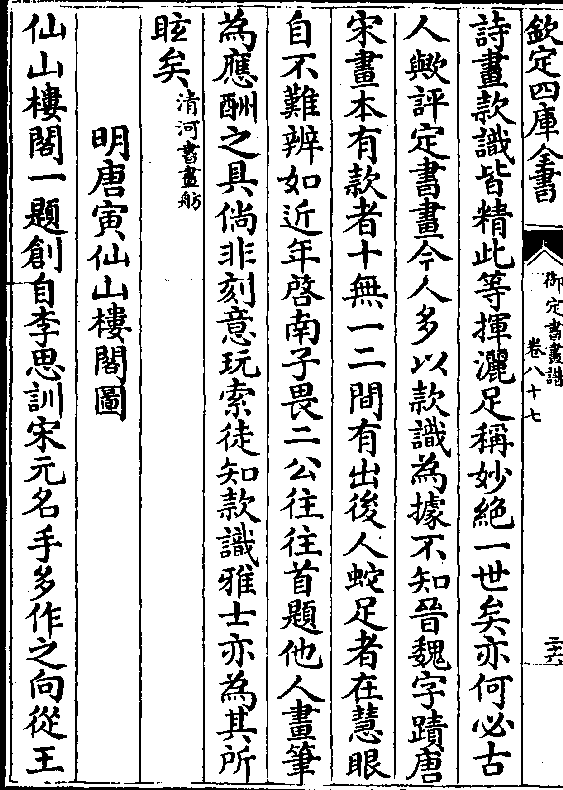 欽定四庫全書
御定書畫譜
卷八十七
三六
詩畫款識皆精此等揮灑足稱妙絶一世矣亦何必古
人歟評定書畫今人多以款識為據不知晉魏字蹟唐
宋畫本有款者十無一二間有出後人蛇足者在慧眼
自不難辨如近年啓南子畏二公往往首題他人畫筆
為應酬之具倘非刻意玩索徒知款識雅士亦為其所
眩矣清河書畫舫
明唐寅仙山樓閣圖
仙山樓閣一題創自李思訓宋元名手多作之向從王